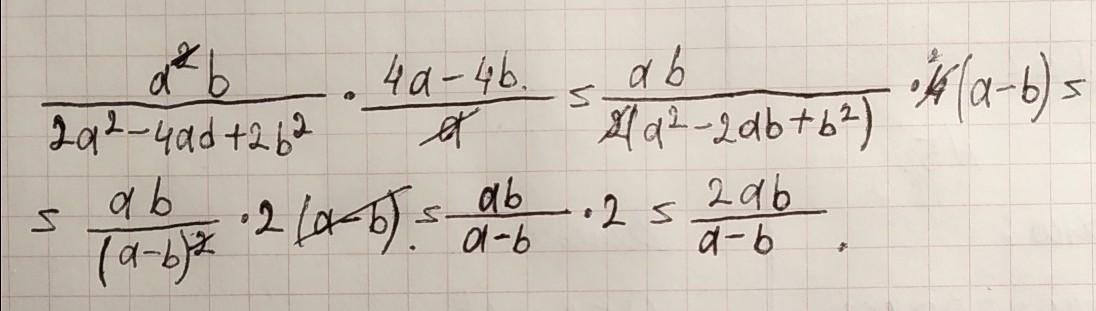 \frac{a^2 b}{2a^2-4ad+2b^2} \cdot \frac{4a-4b.}{a} = \frac{ab}{2(a^2-2ab+b^2)} \cdot \overset{2}{4}(a-b) =
= \frac{ab}{(a-b)^2} \cdot 2(a-b). = \frac{ab}{a-b} \cdot 2 = \frac{2ab}{a-b}.